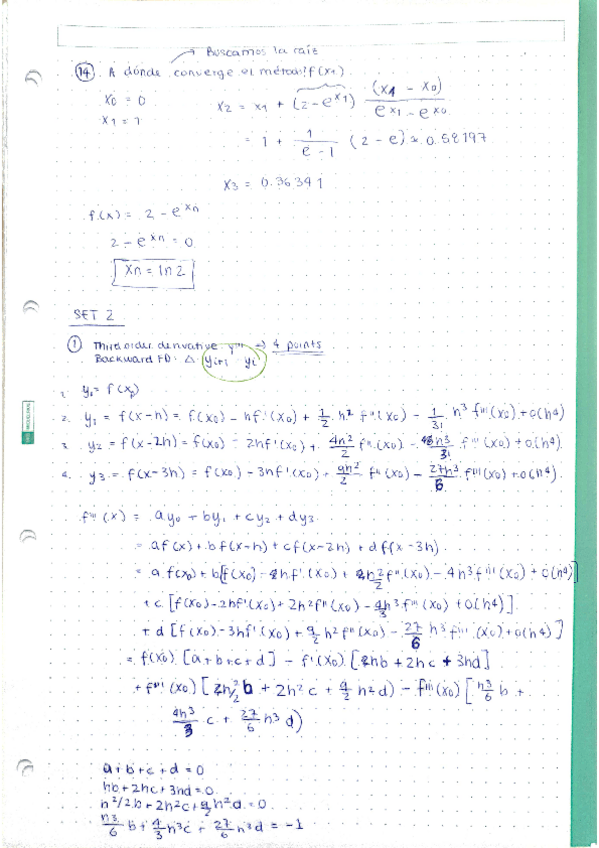 Buscamos la raíz
14. A dónde converge el método? f(x1)
x0 = 0
x1 = 1
x2 = x1 + (2 - e^x1) (x1 - x0) / (e^x1 - e^x0)
= 1 + 1/(e - 1) (2 - e) ≈ 0.58197
x3 = 0.36341
f(x) = 2 - e^xn
2 - e^xn = 0
xn = ln 2
SET 2
1 Third order derivative y''' → 4 points
Backward FD: Δ yi+1 yi
1. y0 = f(x0)
2. y1 = f(x-h) = f(x0) - hf'(x0) + 1/2 h² f''(x0) - 1/3! h³ f'''(x0) + O(h⁴)
3. y2 = f(x-2h) = f(x0) - 2hf'(x0) + 4h²/2 f''(x0) - 8h³/3! f'''(x0) + O(h⁴)
4. y3 = f(x-3h) = f(x0) - 3hf'(x0) + 9h²/2 f''(x0) - 27h³/6 f'''(x0) + O(h⁴).
f'''(x) = ay0 + by1 + cy2 + dy3
= af(x) + bf(x-h) + cf(x-2h) + df(x-3h)
= a f(x0) + b[f(x0) - hf'(x0) + h²/2 f''(x0) - h³ f'''(x0) + O(h⁴)]
+ c [f(x0) - 2hf'(x0) + 2h² f''(x0) - 4/3 h³ f'''(x0) + O(h⁴)]
+ d [f(x0) - 3hf'(x0) + 9/2 h² f''(x0) - 27/6 h³ f'''(x0) + O(h⁴)]
= f(x0) [a+b+c+d] - f'(x0) [hb + 2hc + 3hd]
+ f''(x0) [h²/2 b + 2h²c + 9/2 h²d) - f'''(x0) [h³/6 b +
4h³/3 c + 27/6 h³d)
a+b+c+d = 0
hb + 2hc + 3hd = 0
h²/2 b + 2h²c + 9/2 h²d = 0
h³/6 b + 4/3 h³c + 27/6 h³d = -1